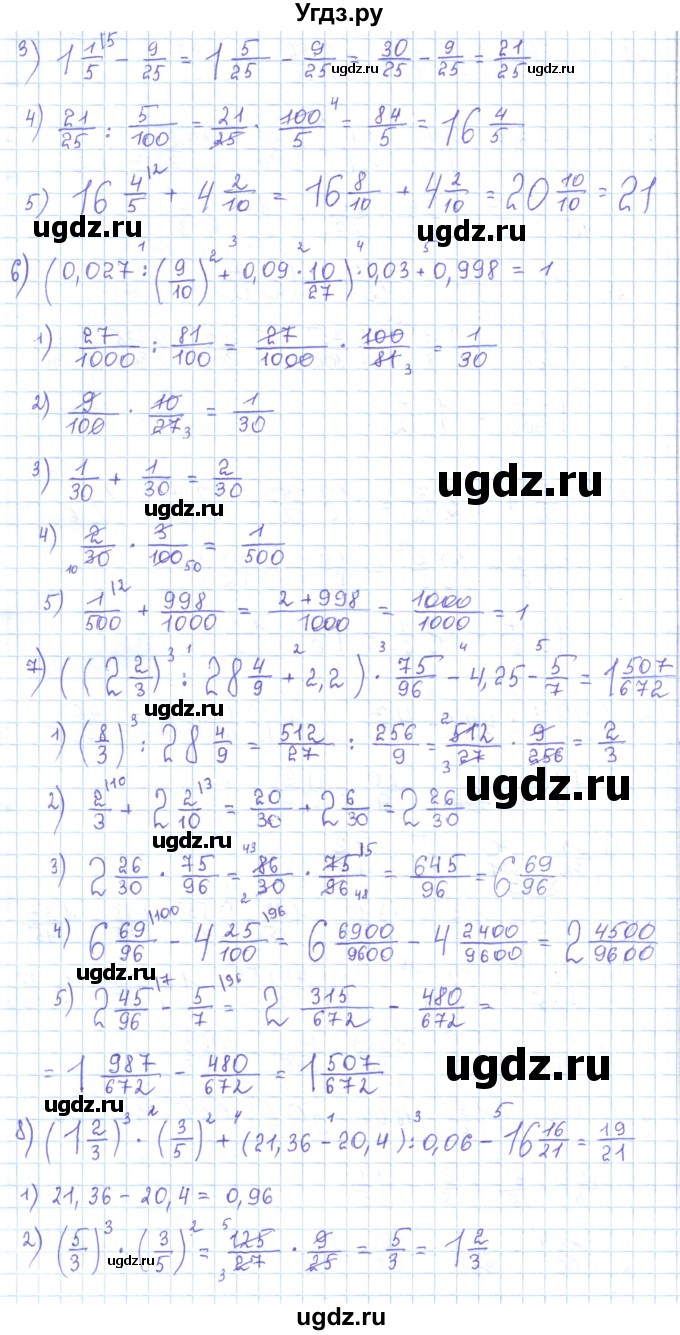 Угдз.ру
3) 1 1/5 |5 - 9/25 = 1 5/25 - 9/25 = 30/25 - 9/25 = 21/25
ugdz.ru ugdz.ru
4) 21/25 : 5/100 = 21/25 · 100/5 4 = 84/5 = 16 4/5
5) 16 4/5 |2 + 4 2/10 = 16 8/10 + 4 2/10 = 20 10/10 = 21
ugdz.ru ugdz.ru
6) (0,027 :¹ (9/10)² +³ 0,09 ·² 10/27) ·⁴ 0,03 +⁵ 0,998 = 1
1) 27/1000 : 81/100 = 27/1000 · 100/81 3 = 1/30
2) 9/100 · 10/27 3 = 1/30
3) 1/30 + 1/30 = 2/30
ugdz.ru ugdz.ru
4) 2/30 10 · 3/100 50 = 1/500
5) 1/500 |2 + 998/1000 = 2+998/1000 = 1000/1000 = 1
7) ((2 2/3)³ :¹ 28 4/9 +² 2,2) ·³ 75/96 -⁴ 4,25 -⁵ 5/7 = 1 507/672
ugdz.ru
1) (8/3)³ : 28 4/9 = 512/27 : 256/9 = 2 512/27 3 · 9/256 = 2/3
2) 2/3 |10 + 2 2/10 |3 = 20/30 + 2 6/30 = 2 26/30
ugdz.ru ugdz.ru
3) 2 26/30 · 75/96 = 43 86/30 2 · 75/96 15 48 = 645/96 = 6 69/96
4) 6 69/96 |100 - 4 25/100 |96 = 6 6900/9600 - 4 2400/9600 = 2 4500/9600
ugdz.ru
5) 2 45/96 |7 - 5/7 |96 = 2 315/672 - 480/672 =
= 1 987/672 - 480/672 = 1 507/672
ugdz.ru ugdz.ru
8) (1 2/3)³ ·² (3/5)² +⁴ (21,36 -¹ 20,4) :³ 0,06 -⁵ 16 16/21 = 19/21
1) 21,36 - 20,4 = 0,96
2) (5/3)³ · (3/5)² = 5 125/27 3 · 9/25 = 5/3 = 1 2/3
ugdz.ru ugdz.ru
ugdz.ru